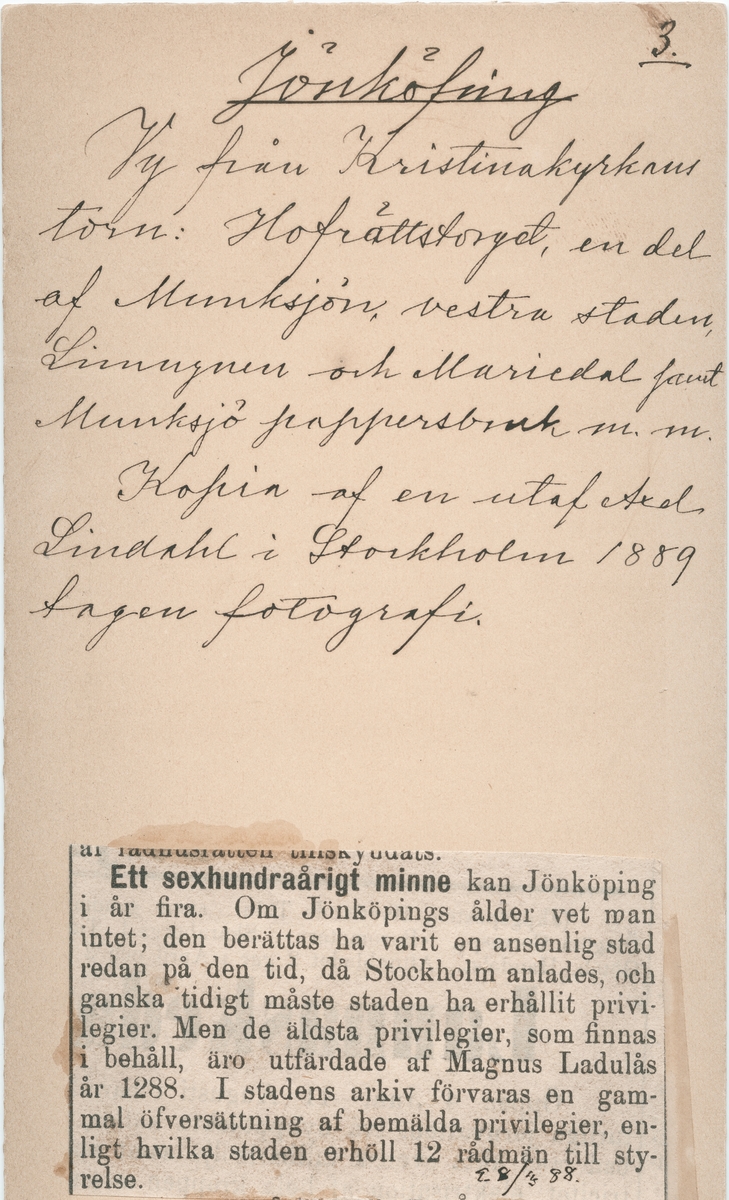 3.
Jönköping
Vy från Kristinakyrkans
torn: Hofrättstorget, en del
af Munksjön, vestra staden,
Limugnen och Mariedal samt
Munksjö pappersbruk m. m.
Kopia af en utaf Axel
Lindahl i Stockholm 1889
tagen fotografi.
af rådhusrätten tillskyddats.
Ett sexhundraårigt minne kan Jönköping
i år fira. Om Jönköpings ålder vet man
intet; den berättas ha varit en ansenlig stad
redan på den tid, då Stockholm anlades, och
ganska tidigt måste staden ha erhållit privi-
legier. Men de äldsta privilegier, som finnas
i behåll, äro utfärdade af Magnus Ladulås
år 1288. I stadens arkiv förvaras en gam-
mal öfversättning af bemälda privilegier, en-
ligt hvilka staden erhöll 12 rådmän till sty-
relse.
88.